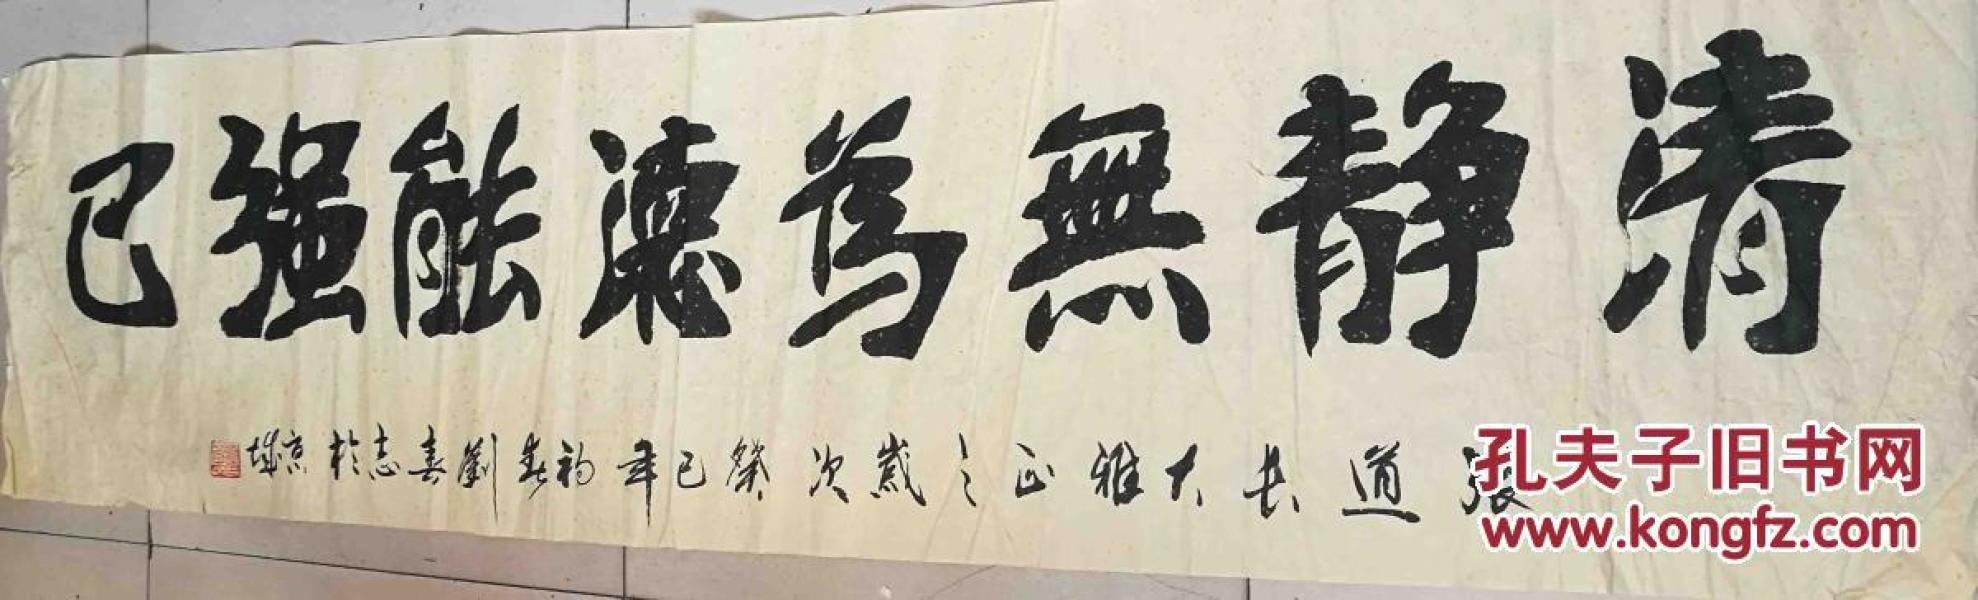 清静無為德能强己
張道長大雅正之歲次癸巳年初春劉春志於京城
孔夫子旧书网
www.kongfz.com